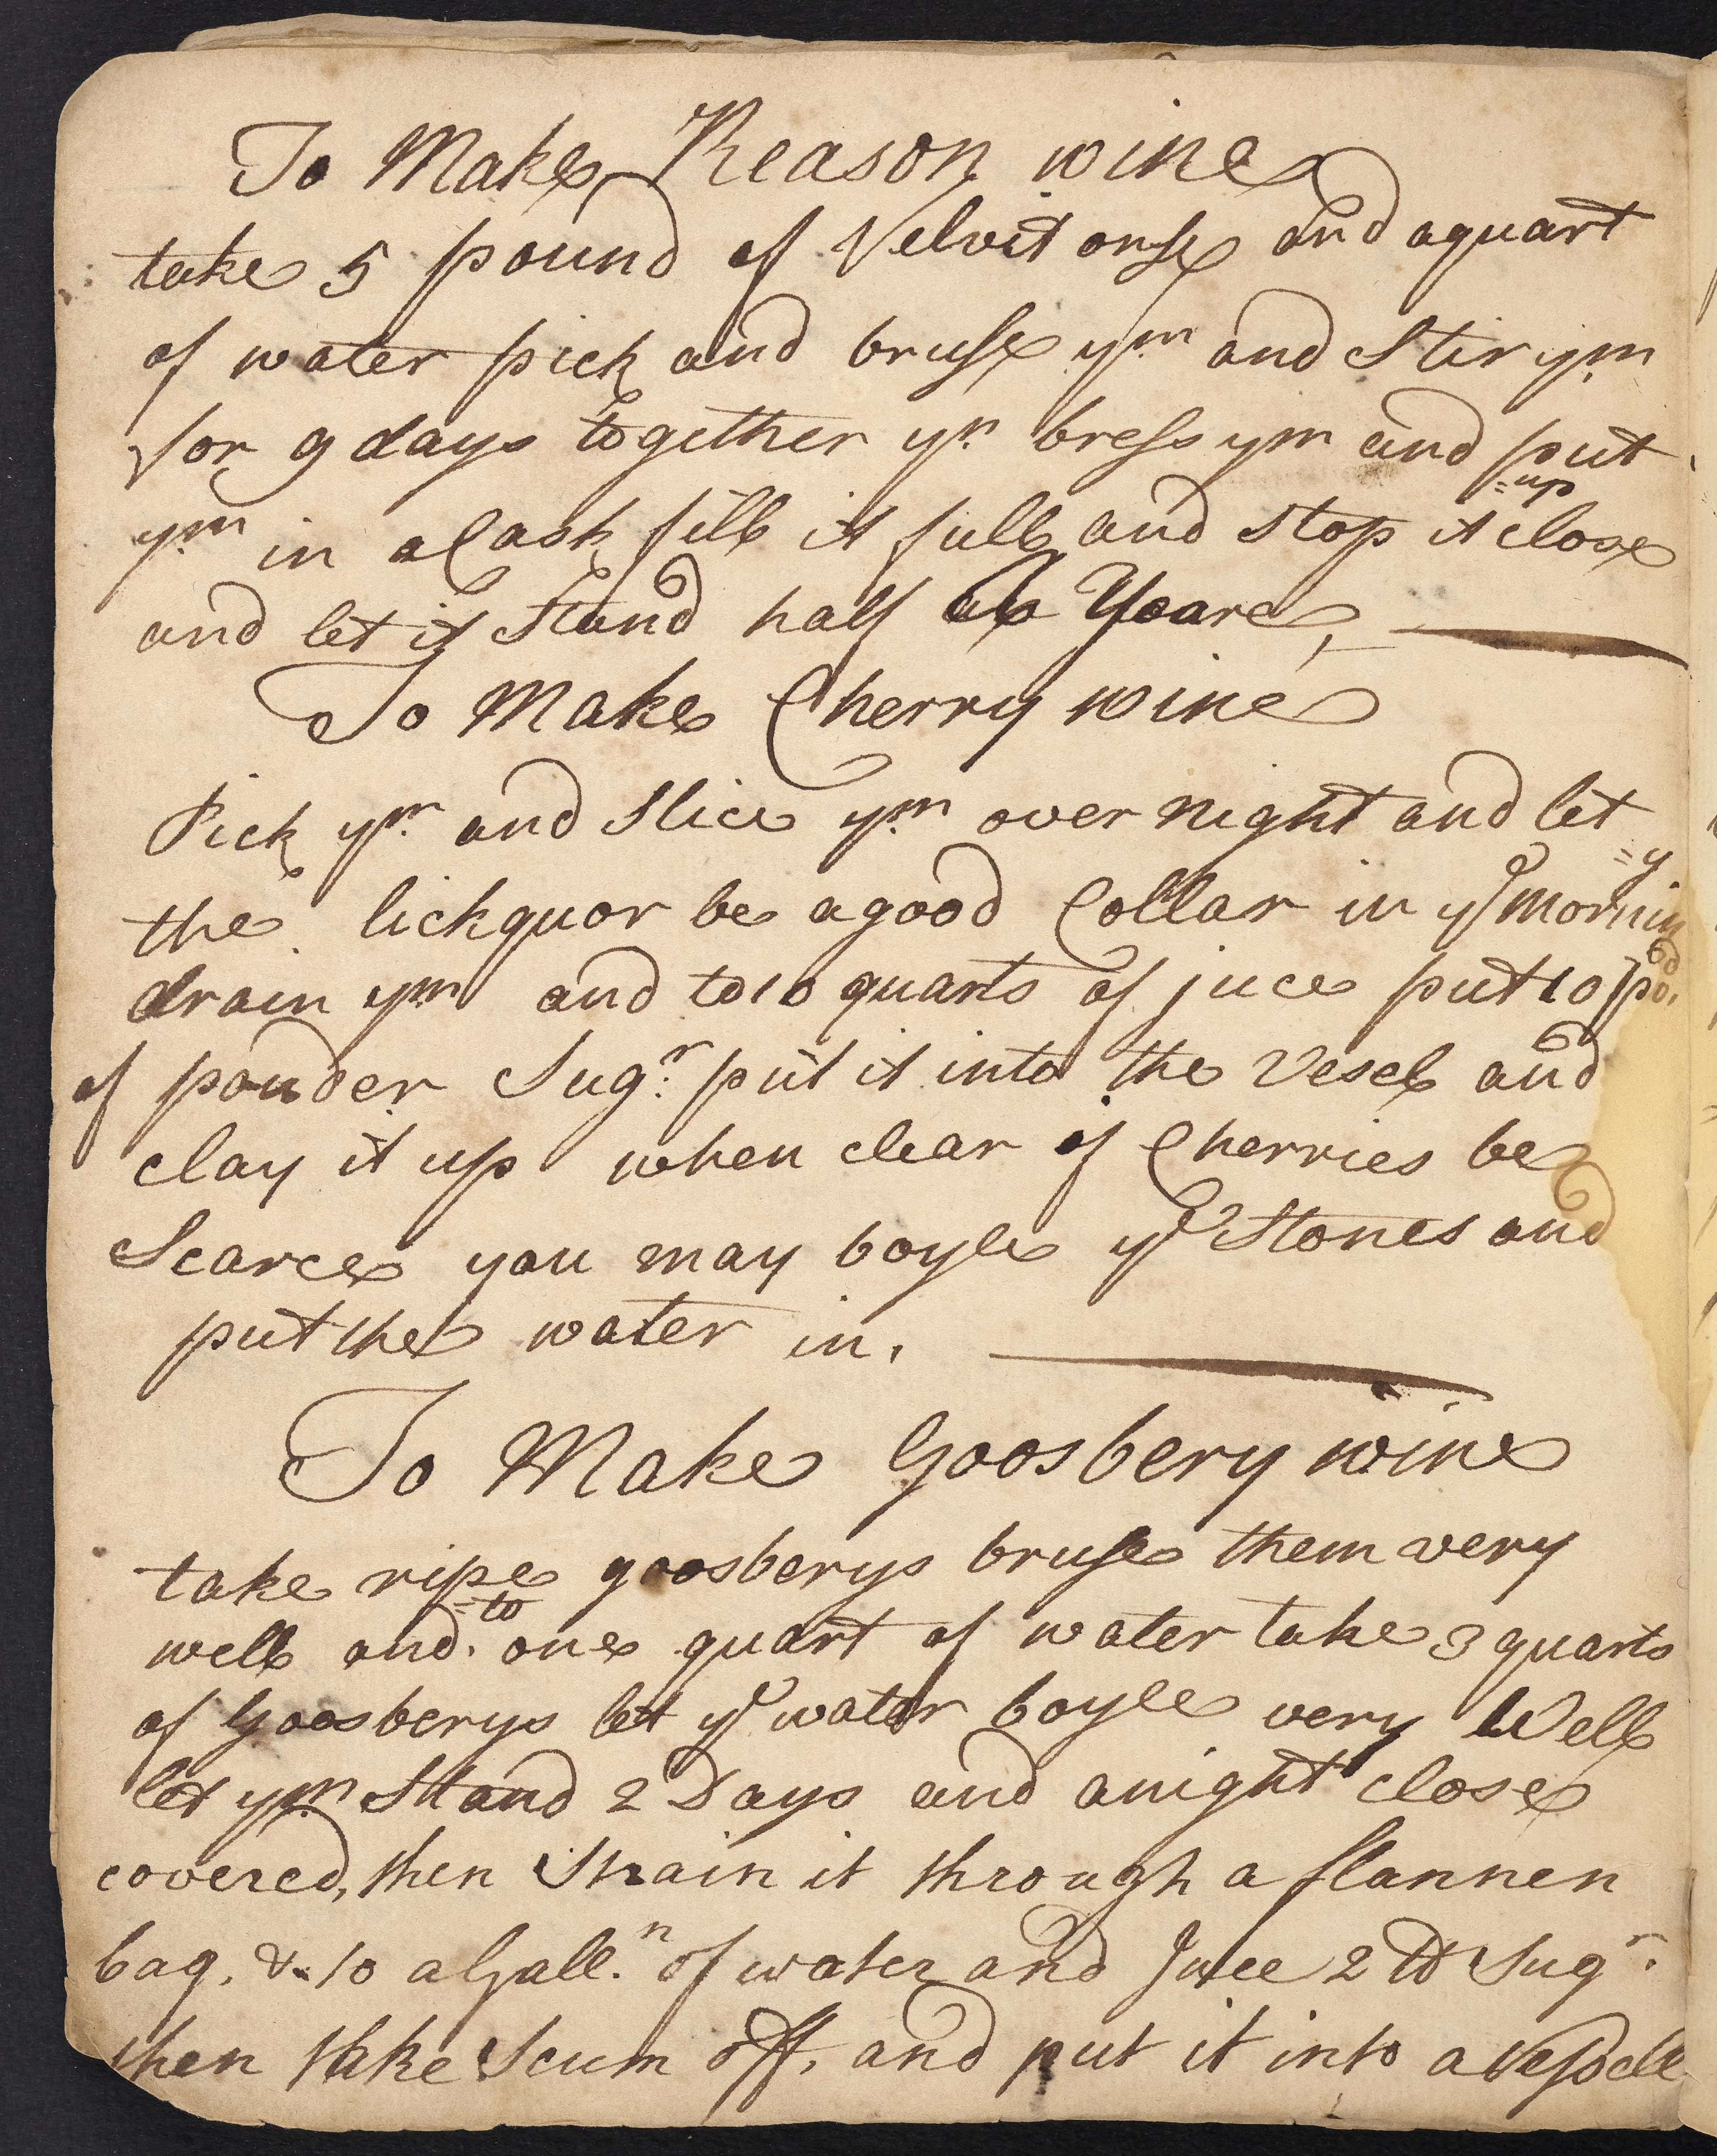 To Make Reason wine
take 5 pound of Velvit onse and a quart
of water pick and bruse ym and Stir ym
for 9 days together yn bress ym and put
ym in a Cask fill it full and stop it =up close
and let it Stand half a Yeare,
To Make Cherry wine
Pick ym and Slice ym over night and let
the lickquor be a good Collar in ye mornin =y
drain ym and to 10 quarts of juce put 10 po.d
of pouder Sugr: put it into the Vesel and
clay it up when clear if Cherries be
Scarce you may boyle ye Stones and
put the water in.
To Make Goosbery wine
take ripe goosberys bruse them very
well and =to one quart of water take 3 quarts
of Goosberys let ye water boyle very Well
let ym Stand 2 Days and a night close
covered, then Strain it through a flannen
bag. & to a Gall.n of water and Juice 2 lb Sugr.
then take Scum off, and put it into a vessell